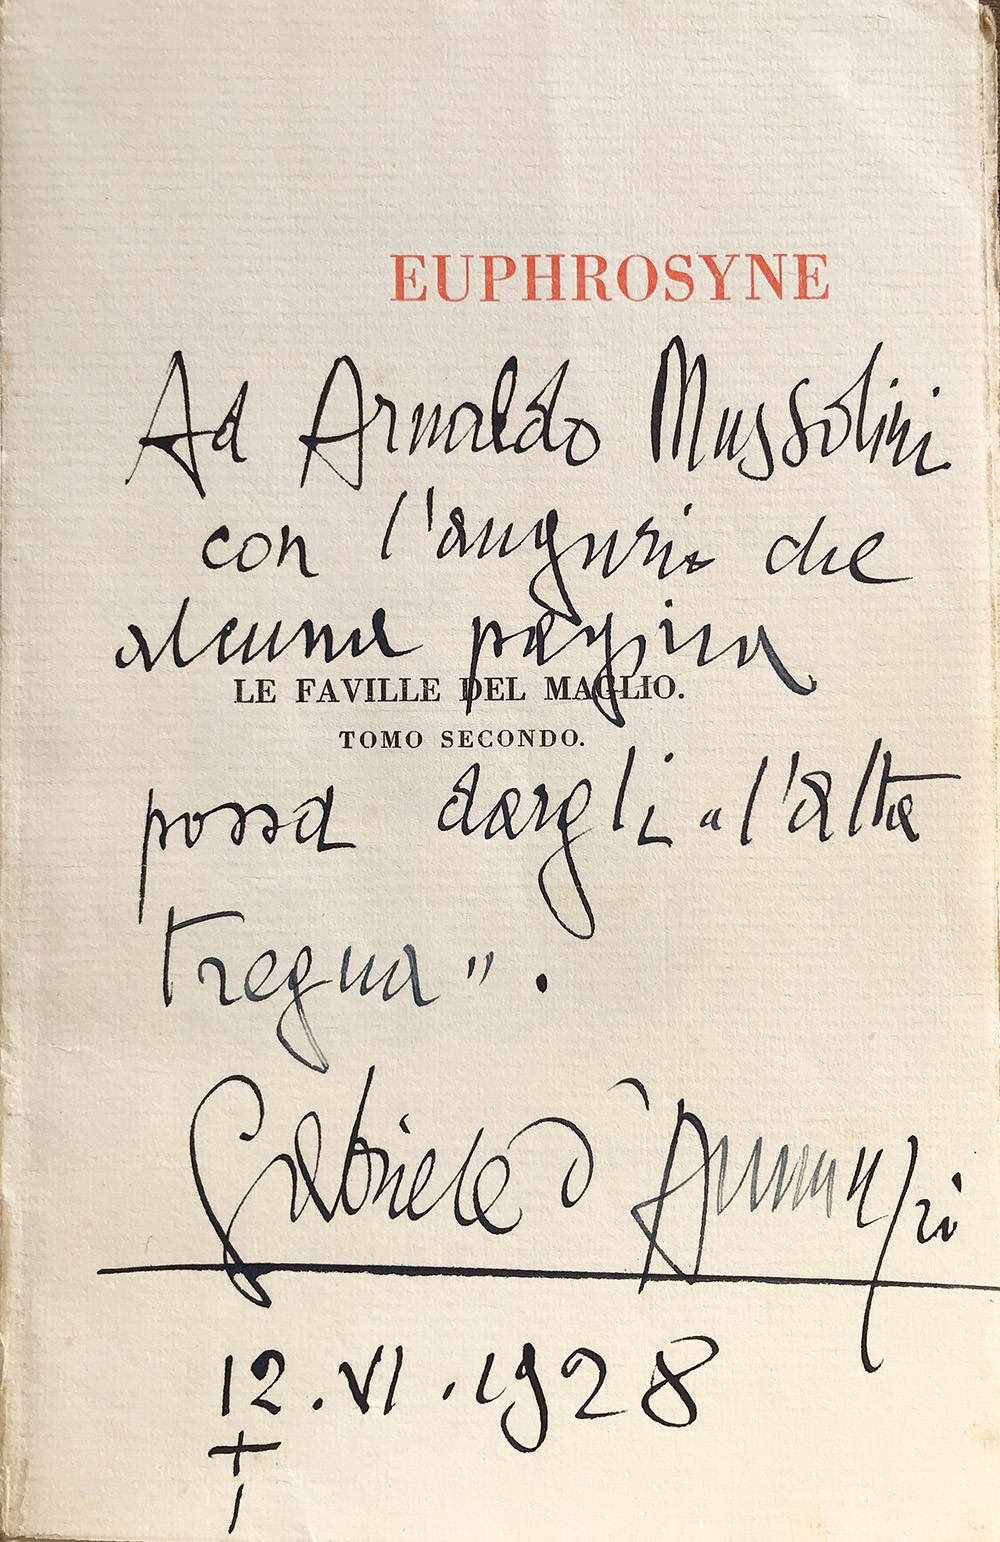 EUPHROSYNE
Ad Arnaldo Mussolini
con l'augurio che
alcuna pagina
LE FAVILLE DEL MAGLIO.
TOMO SECONDO.
possa dargli "l'alta
tregua".
Gabriele d'Annunzio
12.VI.1928